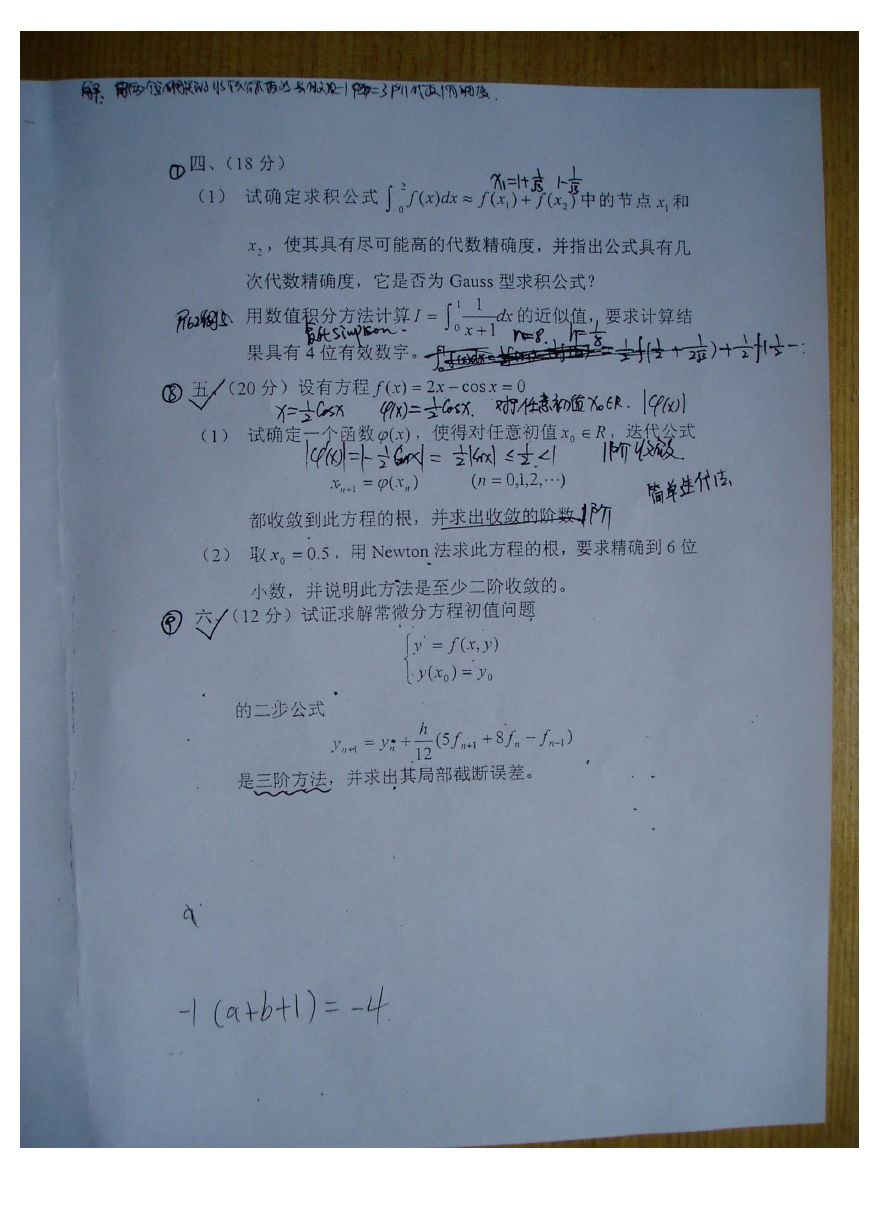 ① 四、（18 分）
x₁=1+1/√3 1-1/√3
（1） 试确定求积公式 ∫₀² f(x)dx ≈ f(x₁) + f(x₂) 中的节点 x₁ 和
x₂，使其具有尽可能高的代数精确度，并指出公式具有几
次代数精确度，它是否为 Gauss 型求积公式？
用数值积分方法计算 I = ∫₀¹ 1/(x+1) dx 的近似值，要求计算结
Simpson. n=8. h=1/8
果具有 4 位有效数字。
⑧ 五、（20 分）设有方程 f(x) = 2x − cos x = 0
x=½cosx φ(x)=½cosx. 对于任意初值 x₀∈R. |φ'(x)|
（1） 试确定一个函数 φ(x)，使得对任意初值 x₀ ∈ R，迭代公式
1阶收敛.
xₙ₊₁ = φ(xₙ) (n = 0,1,2,⋯)
简单迭代法.
都收敛到此方程的根，并求出收敛的阶数 1阶
（2） 取 x₀ = 0.5，用 Newton 法求此方程的根，要求精确到 6 位
小数，并说明此方法是至少二阶收敛的。
⑨ 六、（12 分）试证求解常微分方程初值问题
{ y' = f(x, y)
y(x₀) = y₀
的二步公式
yₙ₊₁ = yₙ + h/12 (5fₙ₊₁ + 8fₙ − fₙ₋₁)
是三阶方法，并求出其局部截断误差。
a
-1 (a+b+1) = -4